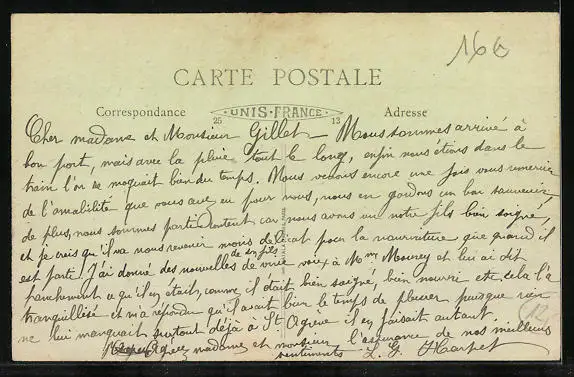 160
CARTE POSTALE
Correspondance UNIS-FRANCE Adresse
25 13
Cher madame et Monsieur Gillet – Nous sommes arrivé à
bon port, mais avec la pluie tout le long, enfin nous étions dans le
train l'on se moquait bien du temps. Nous venons encore une fois vous remercier
de l'amabilité que vous avez eu pour nous, nous en gardons un bon souvenir,
de plus, nous sommes partis content car nous avons vu notre fils bien soigné,
et je crois qu'il va nous revenir moins délicat pour la nourriture que quand il
est parti! J'ai donné des nouvelles de son fils de vive voix à Mme Mourey et lui ai dit
franchement ce qu'il en était, comme il était bien soigné, bien nourri et cela l'a
tranquillisé et m'a répondu qu'il avait bien le temps de pleuver puisque rien
ne lui manquait surtout déjà à St Agrève il en faisait autant.
Agréez madame et monsieur, l'assurance de nos meilleurs
sentiments L. G. Harpet
12